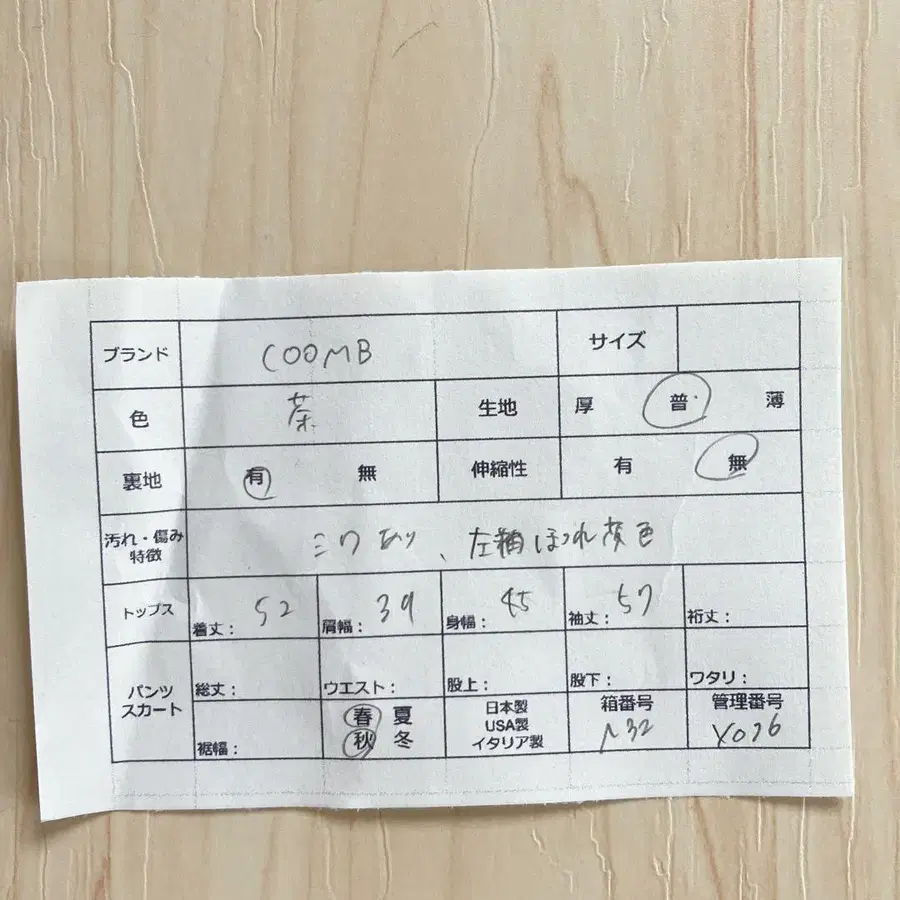 ブランド COOMB サイズ
色 茶 生地 厚 普 薄
裏地 有 無 伸縮性 有 無
汚れ・傷み 特徴 シワあり、左袖ほつれ変色
トップス 着丈: 52 肩幅: 39 身幅: 45 袖丈: 57 裄丈:
パンツ スカート 総丈: ウエスト: 股上: 股下: ワタリ:
裾幅: 春 夏 秋 冬 日本製 USA製 イタリア製 箱番号 管理番号